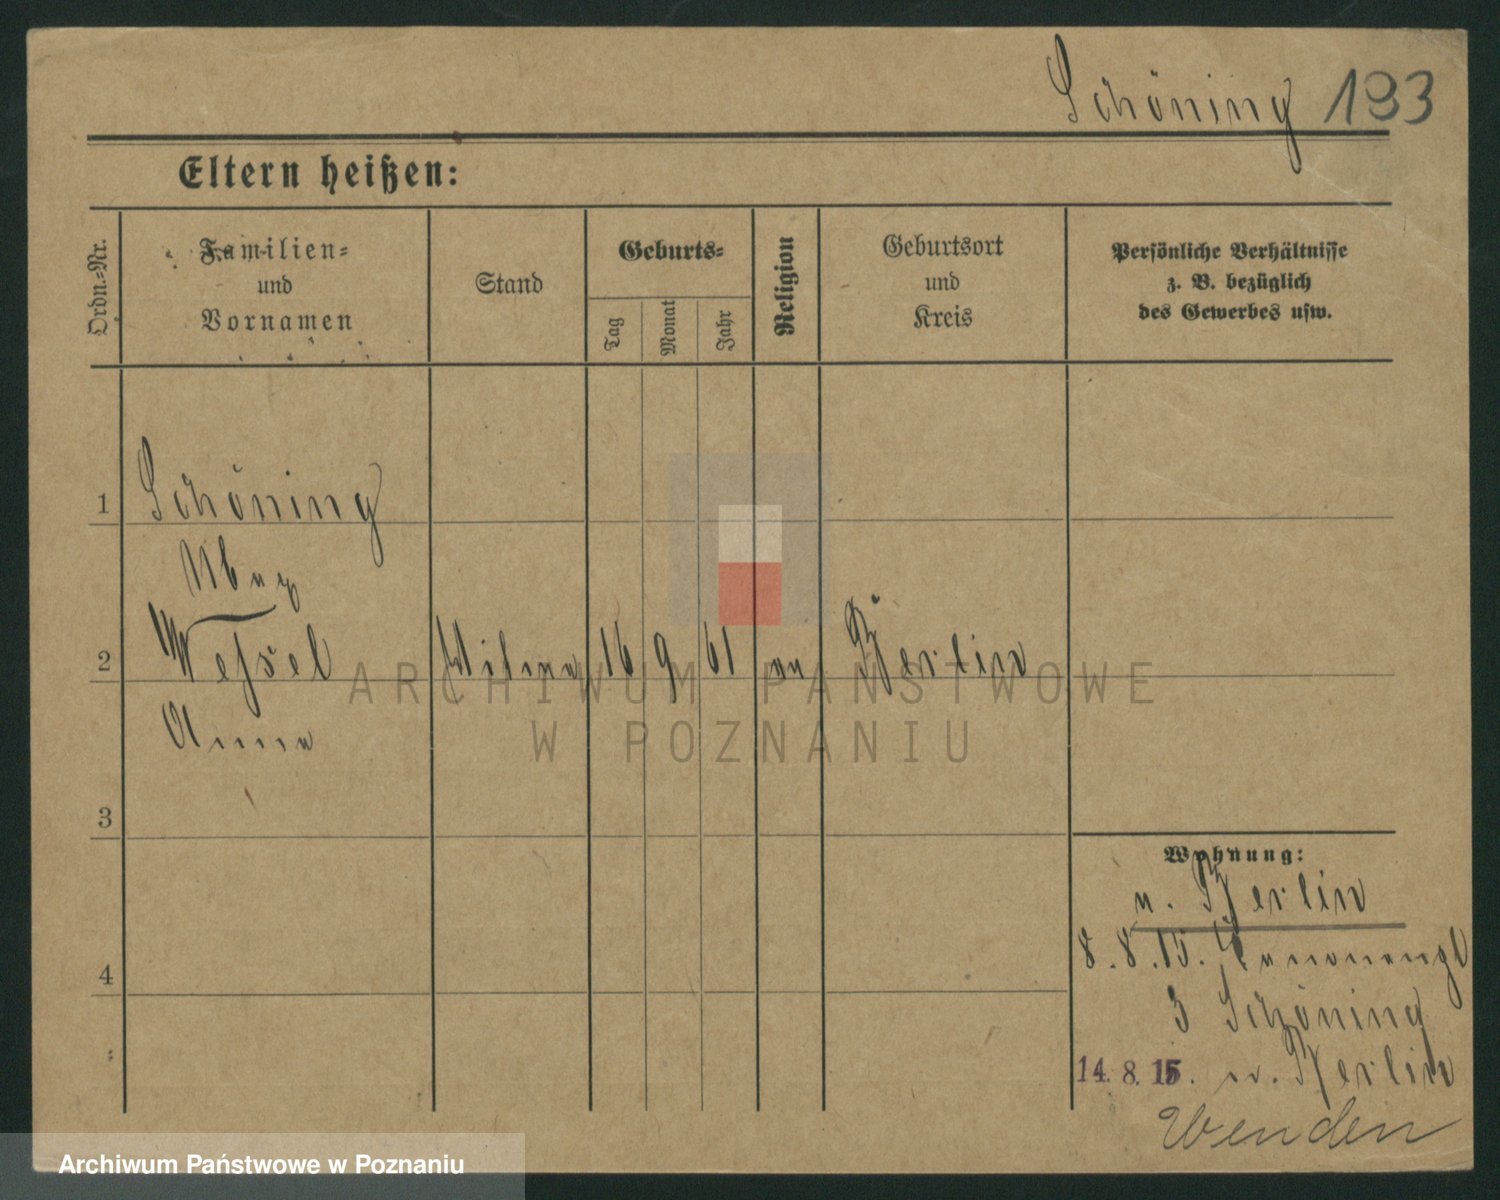 Schöning 193
Eltern heißen:
Ordn.-Nr.
Familien-
und
Vornamen
Stand
Geburts-
Tag
Monat
Jahr
Religion
Geburtsort
und
Kreis
Persönliche Verhältnisse
z. B. bezüglich
des Gewerbes usw.
1 Schöning
2 Wessel 16 9 61 Berlin
Anna
3
4
Wohnung:
v. Berlin
8.8.15.
3 Schöning
14. 8. 15. n. Berlin
Wenden
ARCHIWUM PAŃSTWOWE
W POZNANIU
Archiwum Państwowe w Poznaniu